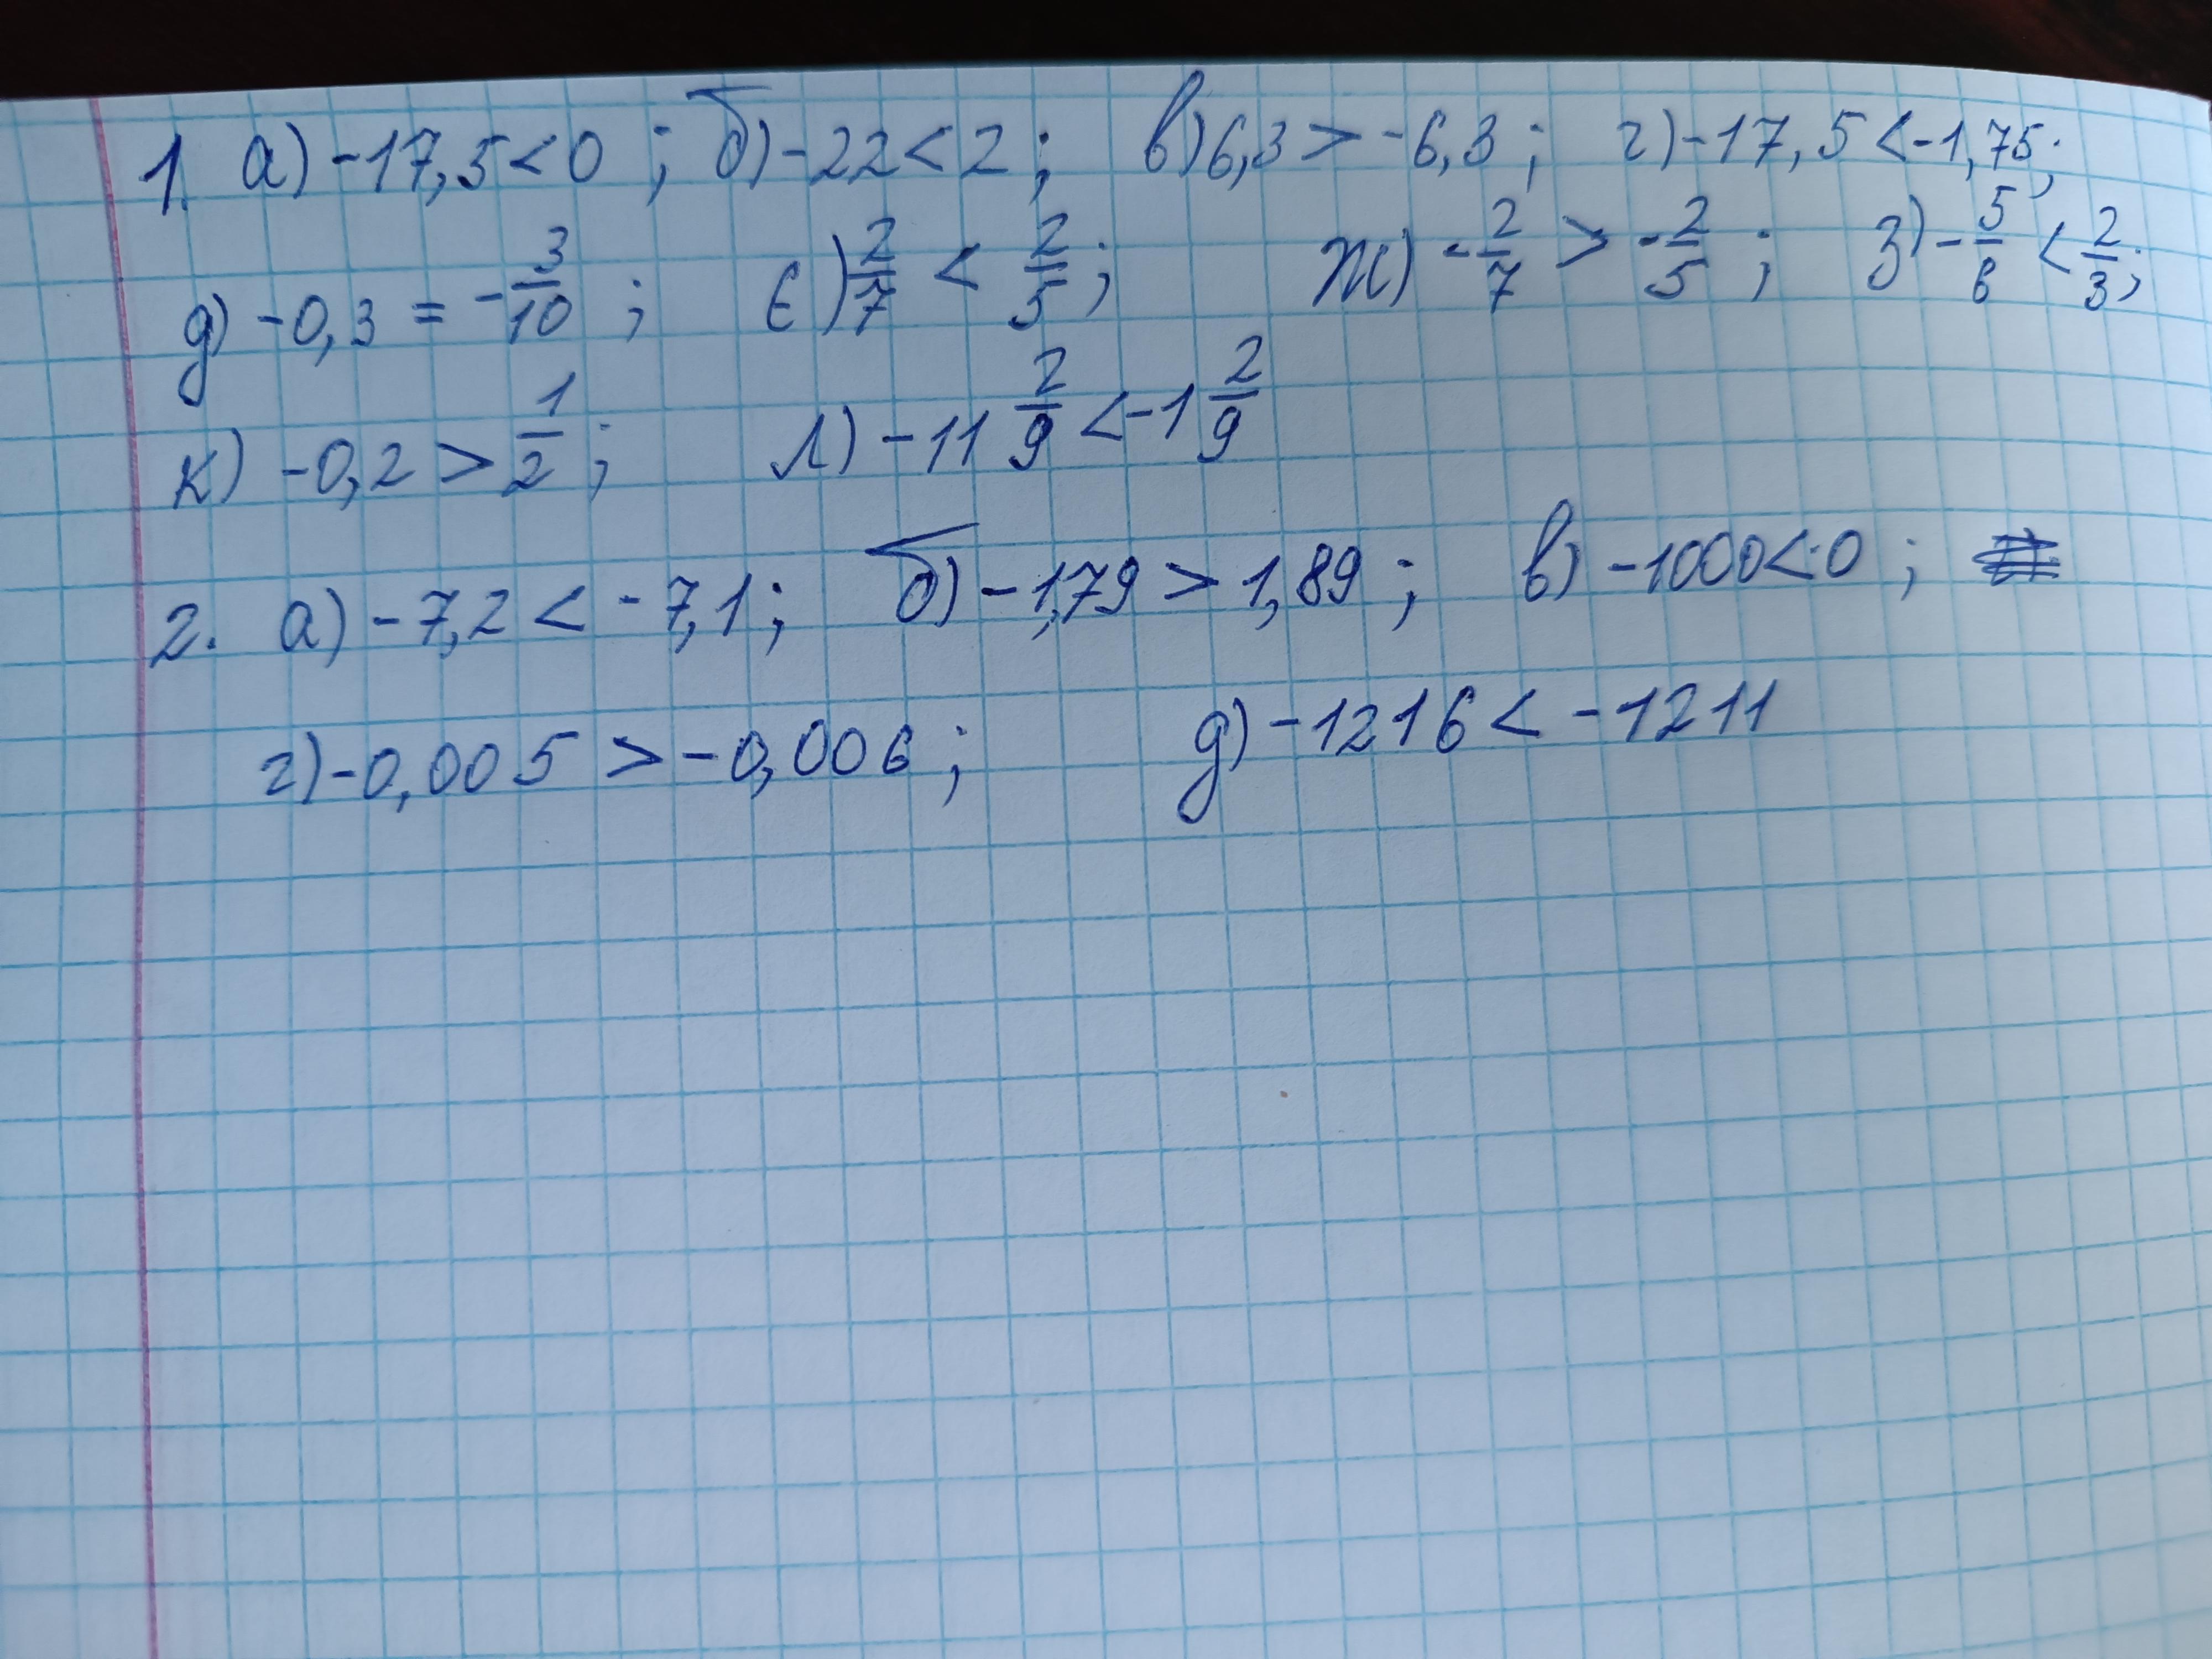 1. а) -17,5 < 0 ; б) -22 < 2 ; в) 6,3 > -6,3 ; г) -17,5 < -1,75;
д) -0,3 = -3/10 ; е) 2/7 < 2/5 ; ж) -2/7 > -2/5 ; з) -5/6 < 2/3;
к) -0,2 > 1/2 ; л) -11 2/9 < -1 2/9
2. а) -7,2 < -7,1 ; б) -1,79 > 1,89 ; в) -1000 < 0 ;
г) -0,005 > -0,006 ; д) -1216 < -1211